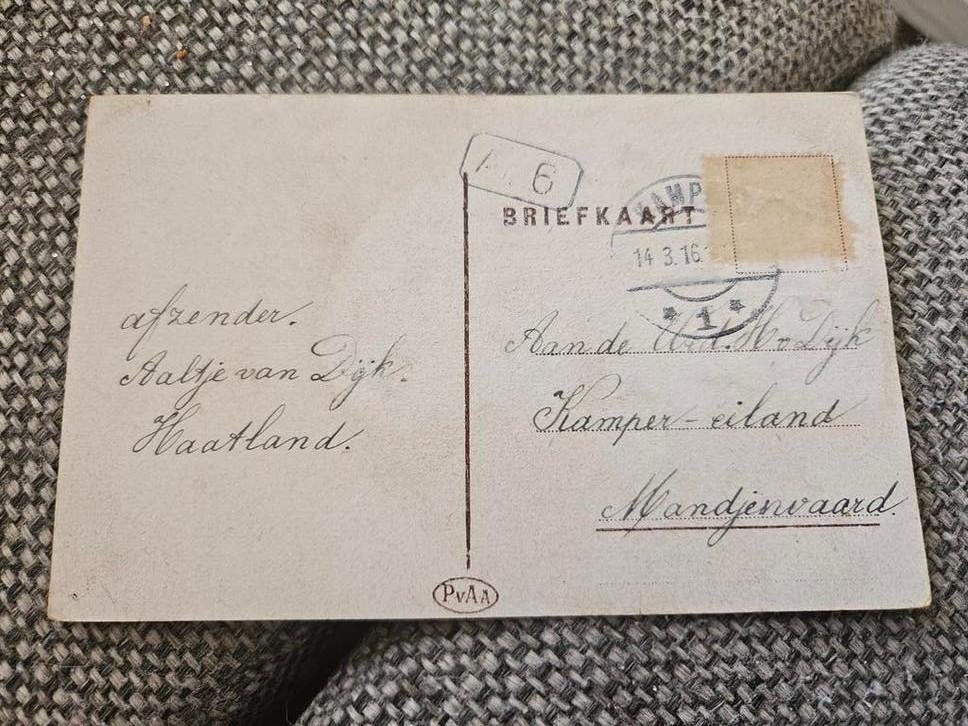 afzender.
Aaltje van Dijk.
Haatland.
6
BRIEFKAART
KAMP
14 3.16
* 1 *
Aan de Wed. H v Dijk
Kamper-eiland
Mandjenvaard.
PvAA